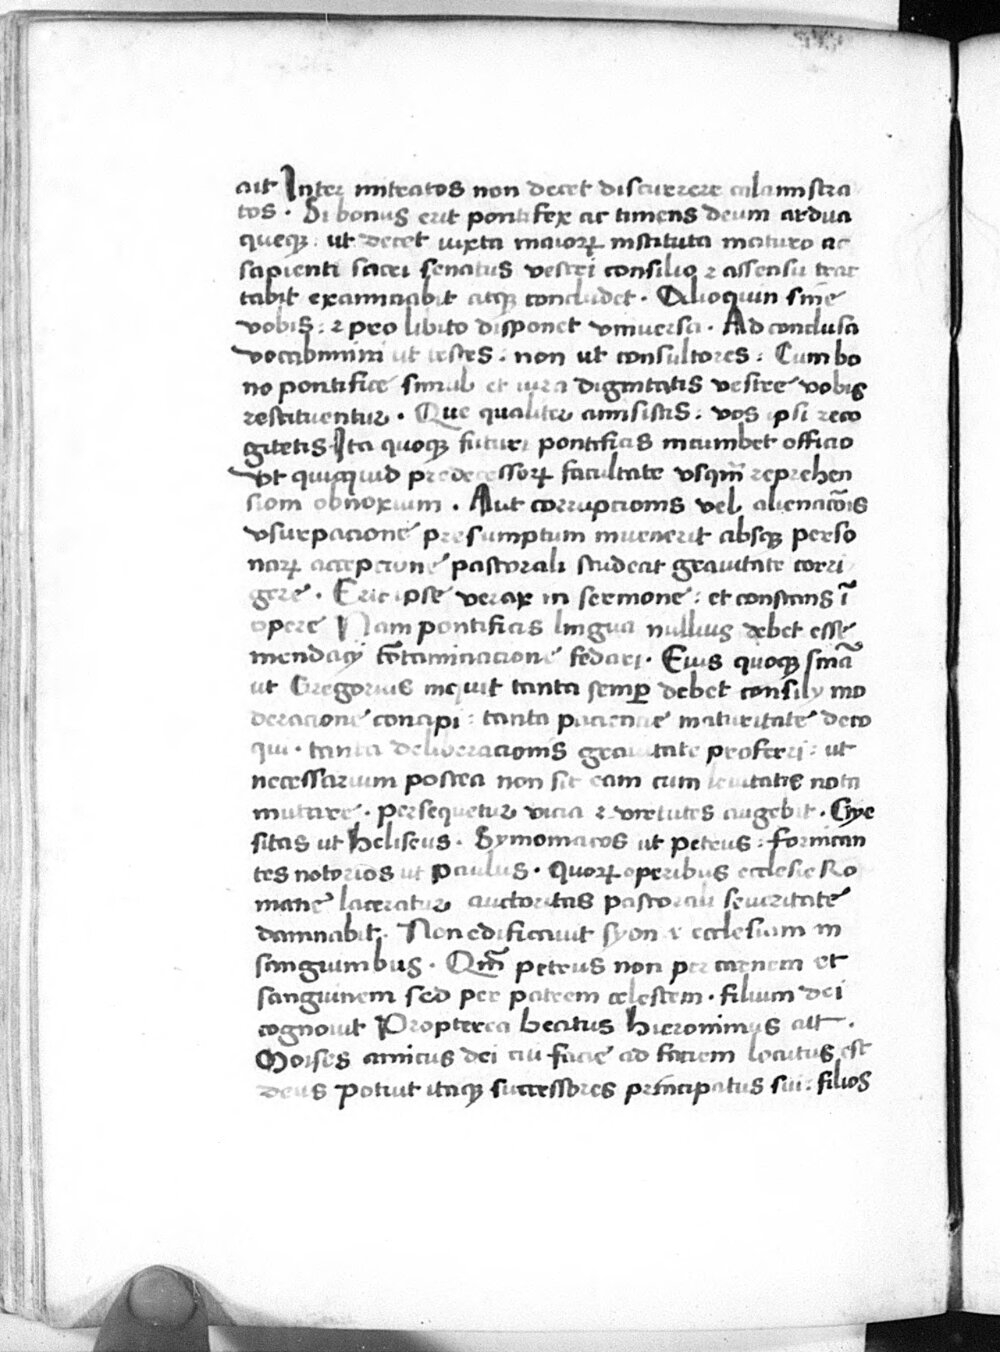 ait Inter mitratos non decet discurrere calamistra
tos . Si bonus erit pontifex ac timens deum ardua
queqꝫ : ut decet iuxta maioꝝ instituta maturo ac
sapienti sacri senatus vestri consilio ⁊ assensu trac
tabit examinabit atqꝫ concludet . Alioquin sine
vobis : ⁊ pro libito disponet vniuersa . Ad conclusa
vocabimini ut testes : non ut consultores : Cum bo
no pontifice simul et iura dignitatis vestre vobis
restituentur . Que qualiter amisistis : vos ipsi reco
gitetis Ita quoqꝫ futuri pontificis incumbet officio
Ut quicquid predecessoꝝ facultate vsqm̄ reprehen
sioni obnoxium . Aut corrupcionis vel alienacōis
vsurpacione presumptum inuenerit absqꝫ perso
naꝝ accepcione pastorali studeat grauitate corri
gere . Erit ipse verax in sermone : et constans ī
opere Nam pontificis lingua nullius debet esse
mendacij cōtaminacione fedari . Eius quoqꝫ sn̄ia
ut Gregorius inquit tanta semꝑ debet consilij mo
deracione concipi : tanta paciencie maturitate deco
qui . tanta deliberacionis grauitate proferri : ut
necessarium postea non sit eam cum leuitatis nota
mutare . Persequetur vicia ⁊ virtutes augebit . Gye
sitas ut Heliseus . Symoniacos ut Petrus : fornican
tes notorios ut Paulus . Quoꝝ operibus ecclesie Ro
mane laceratur auctoritas pastorali seueritate
damnabit . Non edificauit syon ⁊ ecclesiam in
sanguinibus . Qm̄ Petrus non per carnem et
sanguinem sed per patrem celestem . filium dei
cognouit Propterea beatus Hieronimus ait .
Moises amicus dei cui facie ad faciem locutus est
deus Potuit itaqꝫ successores principatus sui : filios